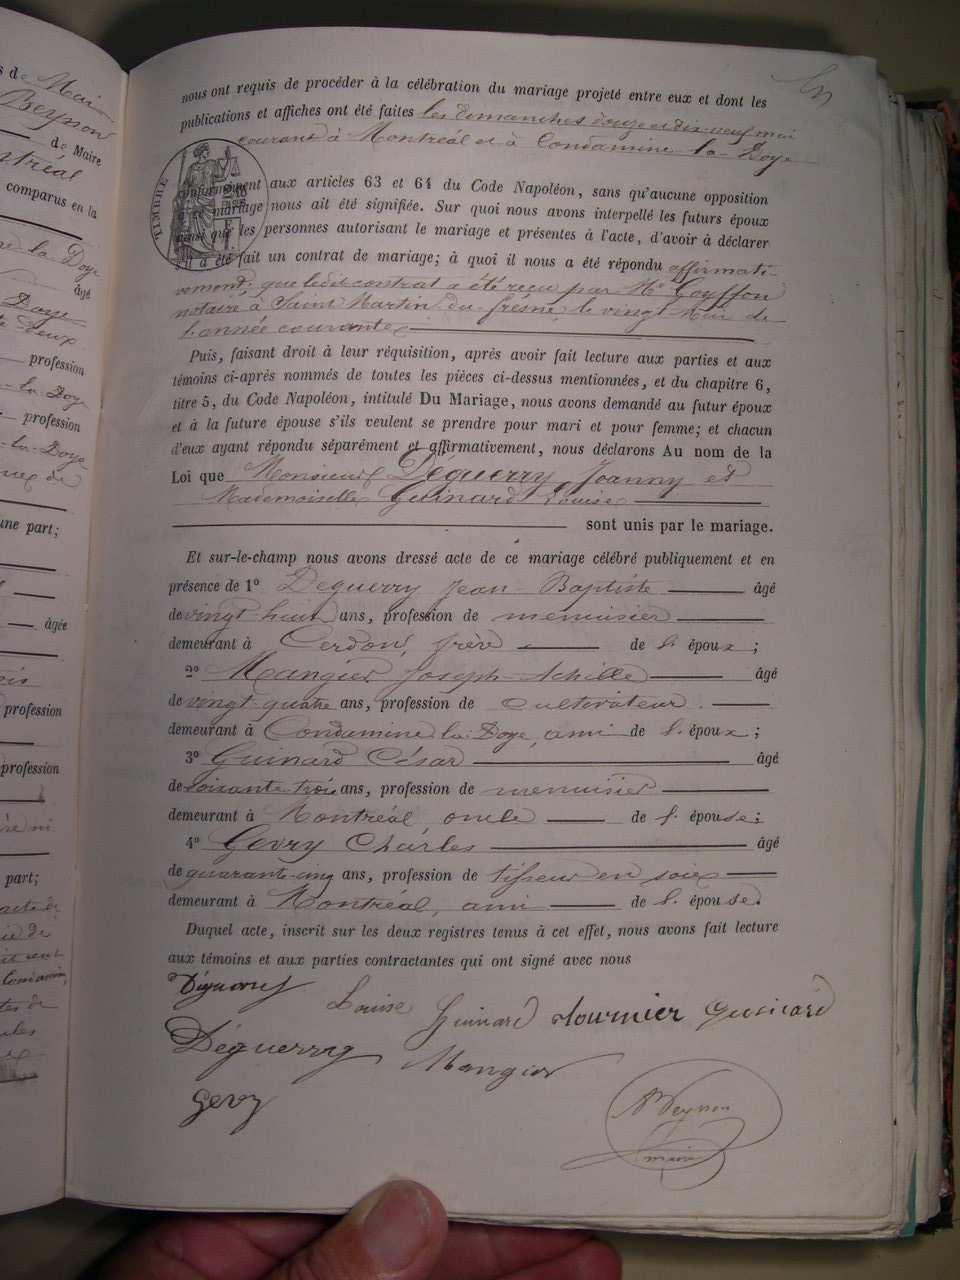 s de Mai
Beysson
de Maire
ntréal
comparus en la
ne la Doye
âgé
Doye
te deux
profession
la Doye
profession
la Doye
une part;
âgée
profession
profession
part;
nous ont requis de procéder à la célébration du mariage projeté entre eux et dont les
publications et affiches ont été faites les dimanches douze et dix-neuf mai
courant à Montréal et à Condamine-la-Doye
TIMBRE
conformément aux articles 63 et 64 du Code Napoléon, sans qu'aucune opposition
à ce mariage nous ait été signifiée. Sur quoi nous avons interpellé les futurs époux
ainsi que les personnes autorisant le mariage et présentes à l'acte, d'avoir à déclarer
s'il a été fait un contrat de mariage; à quoi il nous a été répondu affirmati-
vement; que ledit contrat a été reçu par Me Goyffon
notaire à Saint Martin-du-fresne le vingt Mai de
l'année courante
Puis, faisant droit à leur réquisition, après avoir fait lecture aux parties et aux
témoins ci-après nommés de toutes les pièces ci-dessus mentionnées, et du chapitre 6,
titre 5, du Code Napoléon, intitulé Du Mariage, nous avons demandé au futur époux
et à la future épouse s'ils veulent se prendre pour mari et pour femme; et chacun
d'eux ayant répondu séparément et affirmativement, nous déclarons Au nom de la
Loi que Monsieur Déguerry Joanny et
Mademoiselle Guinard Louise
sont unis par le mariage.
Et sur-le-champ nous avons dressé acte de ce mariage célébré publiquement et en
présence de 1o Deguerry Jean-Baptiste âgé
de vingt-huit ans, profession de menuisier
demeurant à Cerdon, frère de l'époux;
2o Mangier Joseph-Achille âgé
de vingt-quatre ans, profession de cultivateur
demeurant à Condamine la Doye, ami de l'époux;
3o Guinard César âgé
de soixante-trois ans, profession de menuisier
demeurant à Montréal, oncle de l'épouse;
4o Gevry Charles âgé
de quarante-cinq ans, profession de tisseur en soie
demeurant à Montréal, ami de l'épouse.
Duquel acte, inscrit sur les deux registres tenus à cet effet, nous avons fait lecture
aux témoins et aux parties contractantes qui ont signé avec nous
Louise Guinard Tournier Guinard
Déguerry Mangier
Gevry
Beysson
maire